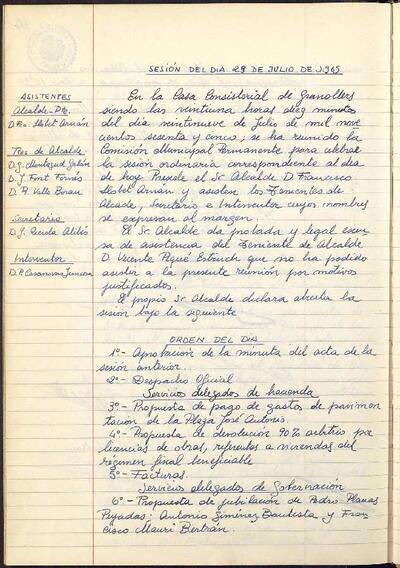 SESIÓN DEL DIA 29 DE JULIO DE 1.965
ASISTENTES
Alcalde-Pte.
D. Fco. Llobet Arnán
Ttes. de Alcalde
D. J. Montagud
D. J. Font Fornés
D. A. Valls Berau
Secretario
D. J.
Interventor
D. P. Casanovas
En la Casa Consistorial de Granollers
siendo las veintiuna horas diez minutos
del dia veintinueve de Julio de mil nove
cientos sesenta y cinco, se ha reunido la
Comisión Municipal Permanente para celebrar
la sesión ordinaria correspondiente al dia
de hoy. Preside el Sr Alcalde D Francisco
Llobet Arnán y asisten los Tenientes de
Alcalde, Secretario e Interventor cuyos nombres
se expresan al margen.
El Sr Alcalde da probada y legal excu
sa de asistencia del Teniente de Alcalde
D. Vicente Piqué Estruch que no ha podido
asistir a la presente reunión por motivos
justificados.
El propio Sr Alcalde declara abierta la
sesión bajo la siguiente
ORDEN DEL DIA
1º- Aprobación de la minuta del acta de la
sesión anterior.
2º- Despacho Oficial
Servicios delegados de hacienda
3º- Propuesta de pago de gastos de pavimen
tación de la Plaza José Antonio.
4º- Propuesta de devolución 90% arbitrio por
licencias de obras, referentes a viviendas del
régimen fiscal beneficiable
5º- Facturas.
Servicios delegados de Gobernación
6º- Propuesta de jubilación de Pedro Planas
Pujadas: Antonio Giménez Bautista y Fran
cisco Mauri Bertrán.